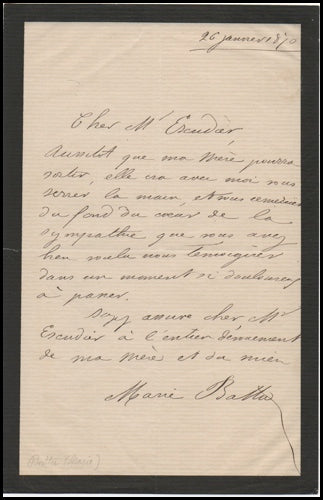 26 janvier 1870
Cher Mr Escudier,
Aussitot que ma mère pourra
sortir, elle ira avec moi vous
serrer la main, et vous remercier
du fond du cœur de la
sympathie que vous avez
bien voulu nous temoigner
dans un moment si douloureux
à passer.
Soyez assuré cher Mr
Escudier à l'entier dévouement
de ma mère et du mien
Marie Battu
(Battu (Marie)